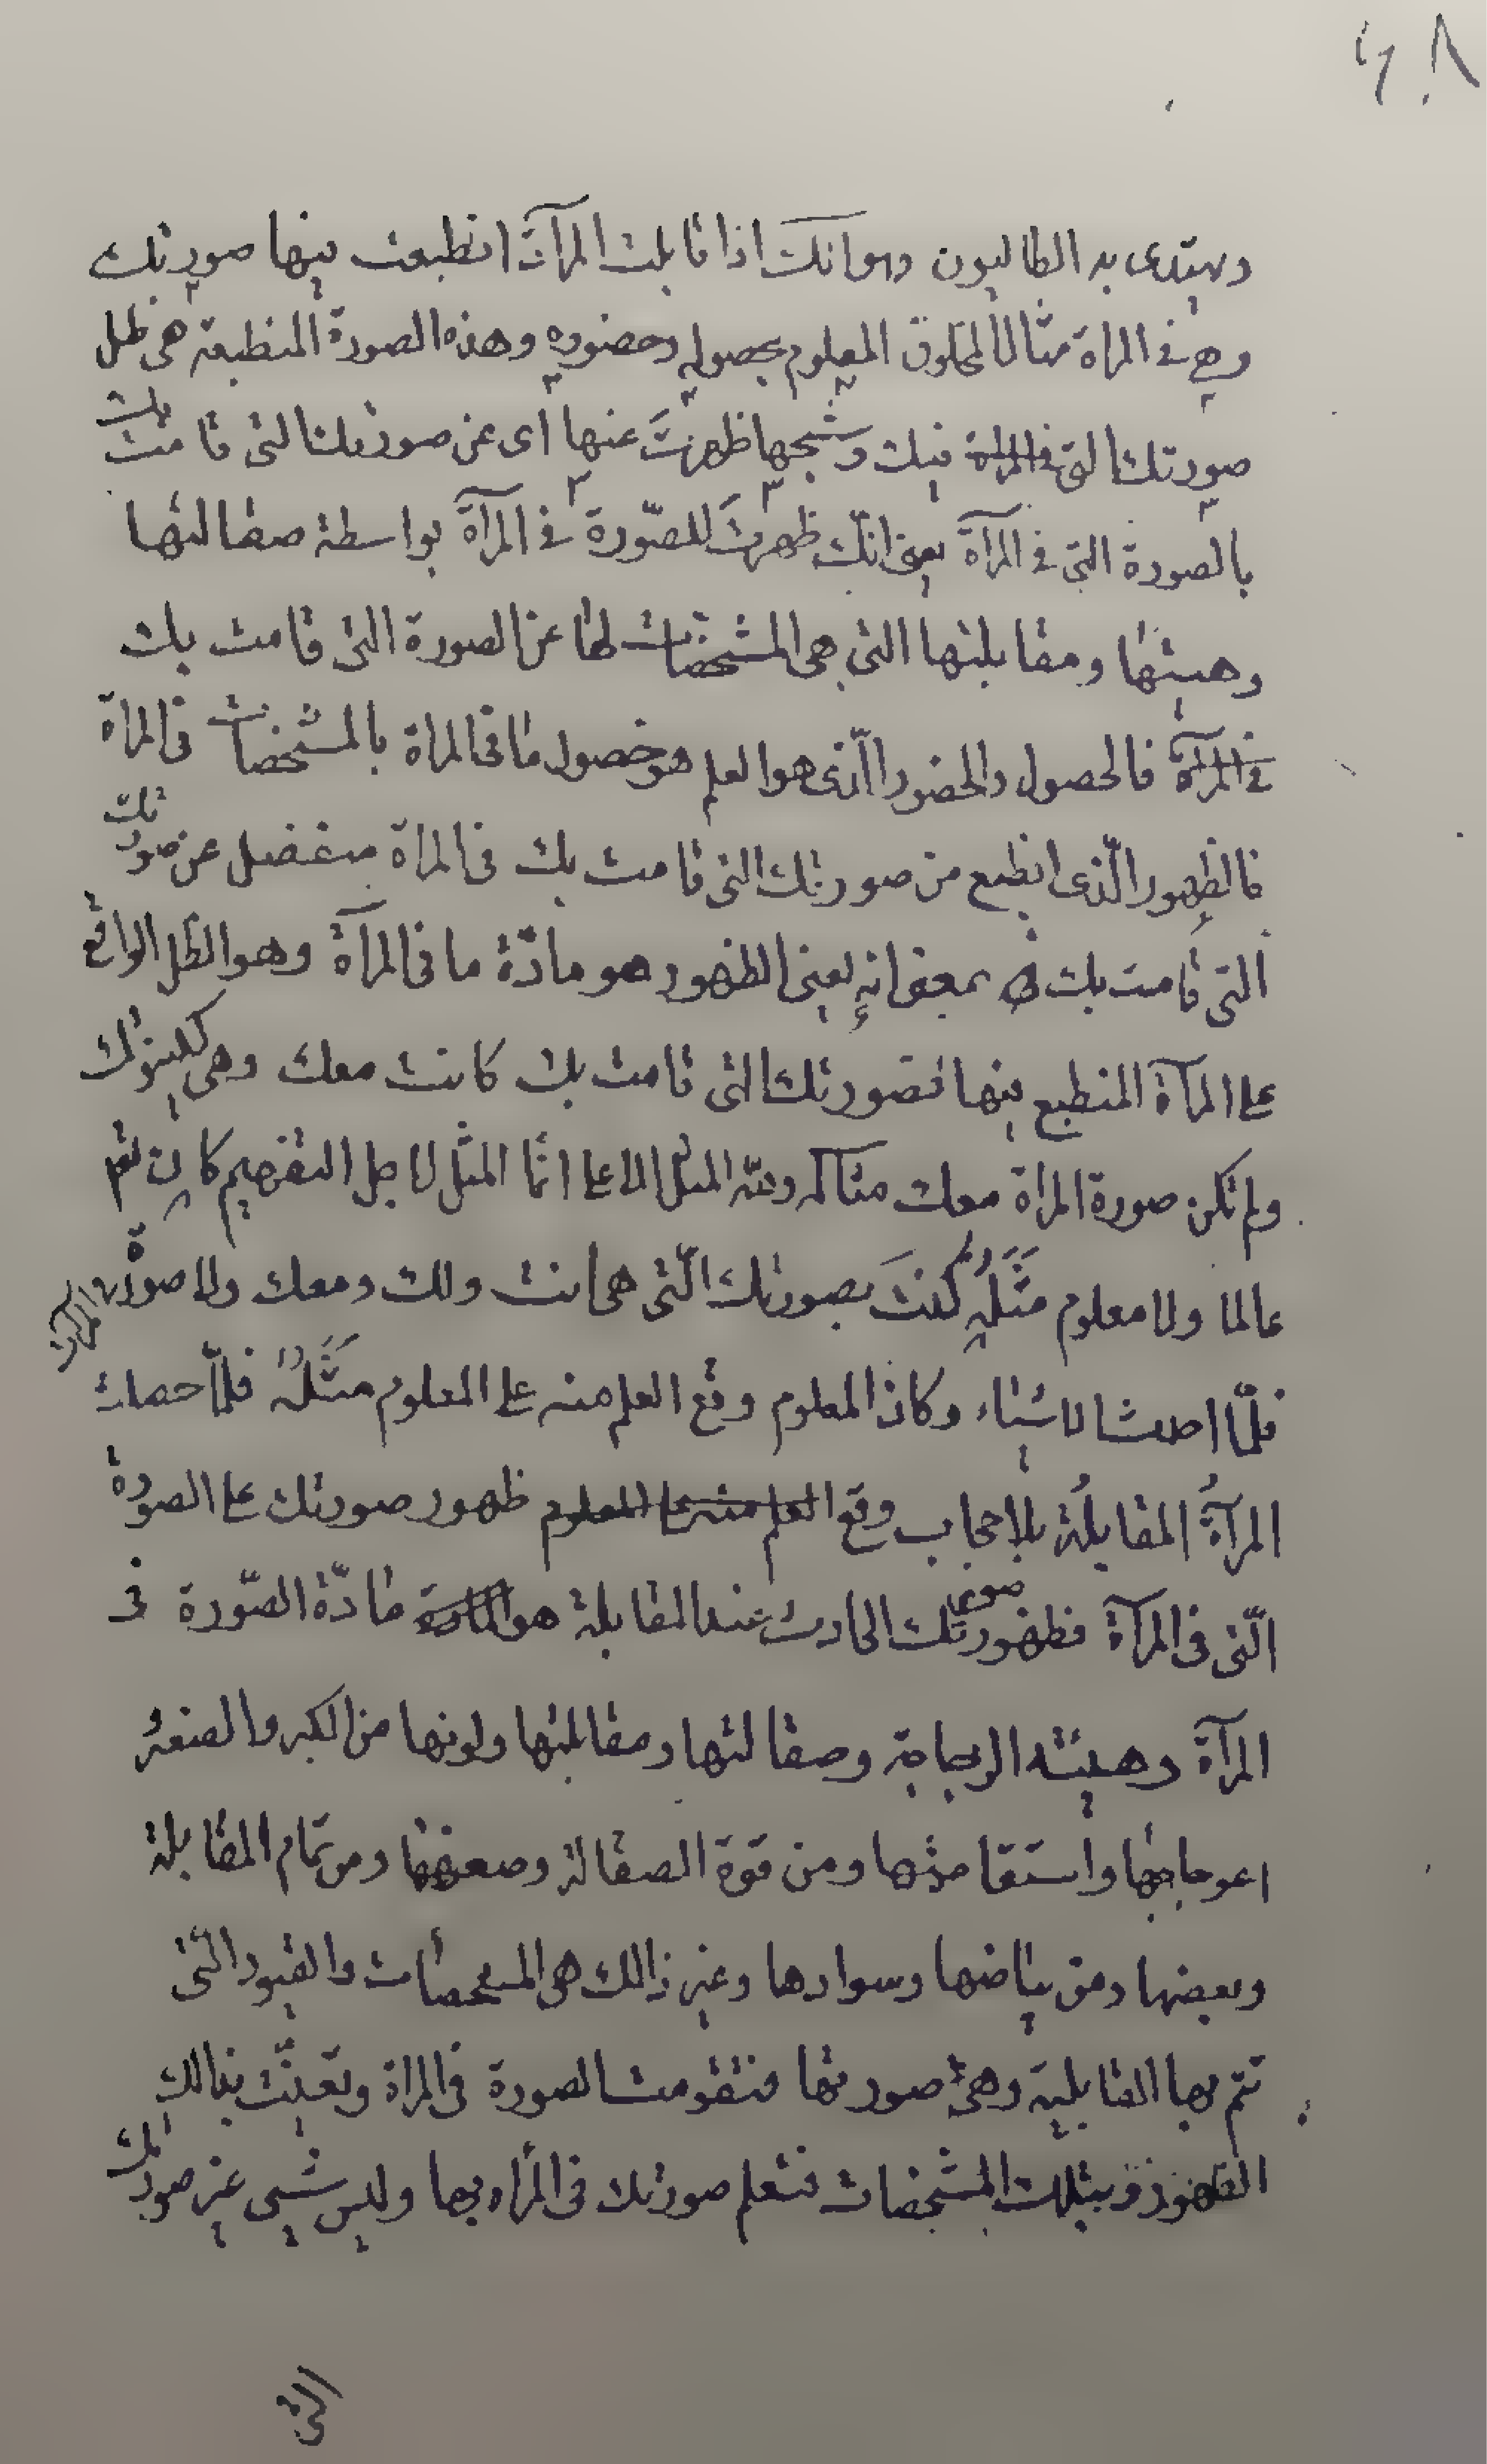 ويهتدى به الطالبون وهو انك اذا قابلت المرآت انطبعت فيها صورتك
وهي في المراة مثال المخلوق المعلوم بحصوله وحضوره وهذه الصورة المنطبعة هي ظل
صورتك التي في المراة فيك وشبحها ظهرت عنها اى عن صورتك التى قامت بك
بالصورة التي في المرآة يعني انك ظهرت للصّورة في المرآة بواسطة صقالتها
وهيئتها ومقابلتها التي هي المشخصات لها عن الصورة التى قامت بك
في المرآة فالحصول والحضور الّذى هو العلم هو حصول ما فى المراة بالمشخصات فى المراة
فالظهور الّذى انطبع من صورتك التى قامت بك فى المراة منفصل عن صورتك
التي قامت بك بمعنى انه يعنى الظهور هو مادّة ما فى المرآة وهو الظل الواقع
على المرآة المنطبع فيها فصورتك التى قامت بك كانت معك وهى ككينونتك
ولم تكن صورة المراة معك مثاله ولله المثل الاعلى انّما المثل لاجل التفهيم كان تعم
عالما ولا معلوم مَثَلُهُ كنتَ بصورتك الّتى هى انت ولك ومعك ولا صورة المرآة
فلمّا احدث الاشياء وكان المعلوم وقع العلم منه على المعلوم مَثَلُهُ فلمّا حصلت
المرآةُ المقابلُة بلا حجاب وقع العلم منه على المعلوم ظهور صورتك على الصورة
الّتى فى المرآة فظهور صورتك الحادث عند المقابلة هو المادة مادّة الصّورة فى
المرآة وهيئة الزجاجة وصقالتها ومقابلتها ولونها من الكبر والصغر
اعوجاجها واستقامتها ومن قوة الصقالة وضعفها ومن تمام المقابلة
وبعضها ومن بياضها وسوادها وغير ذالك هى المشخصات والقيود الّتى
تتم بها القابلية وهى صورتها فتقومت الصورة فى المراة وتعينّت بذالك
الظهور وبتلك المشخصات فتعلم صورتك فى المراه بها وليس شيى غير صورتك
التى